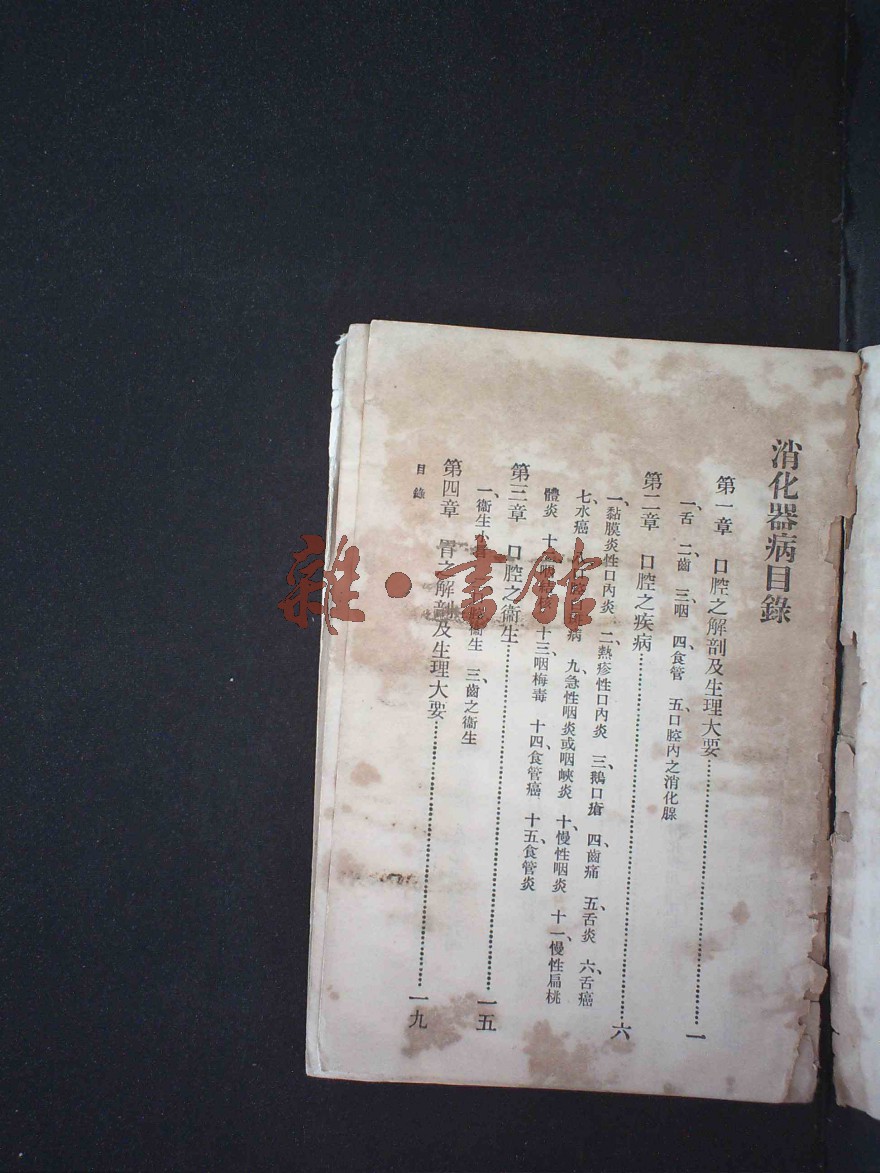 消化器病目錄
第一章 口腔之解剖及生理大要……一
一、舌 二、齒 三、咽 四、食管 五、口腔內之消化腺
第二章 口腔之疾病……六
一、黏膜炎性口內炎 二、熱疹性口內炎 三、鵝口瘡 四、齒痛 五、舌炎 六、舌癌
七、水癌 病 九、急性咽炎或咽峽炎 十、慢性咽炎 十一、慢性扁桃
體炎 十三、咽梅毒 十四、食管癌 十五、食管炎
第三章 口腔之衞生……一五
一、衞生 衞生 三、齒之衞生
第四章 胃之解剖及生理大要……一九
目錄
雜·書館